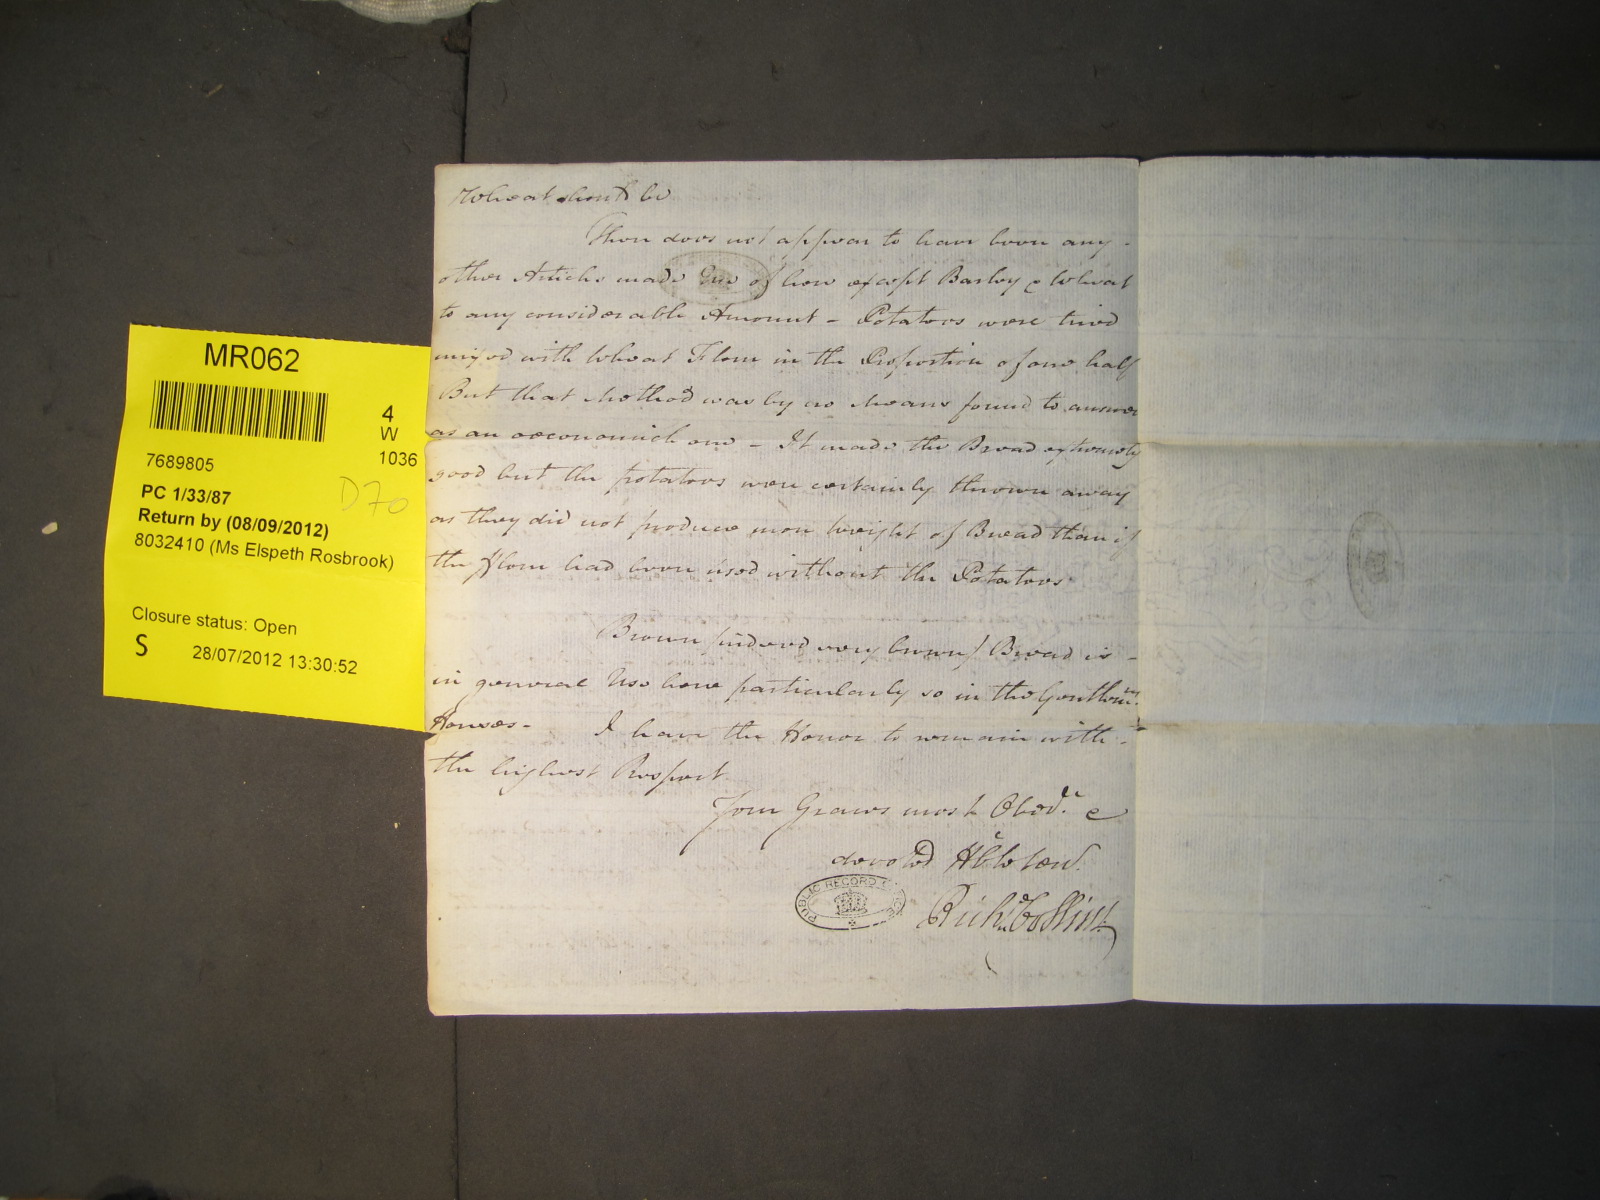 MR062
4
W
1036
7689805
PC 1/33/87
D70
Return by (08/09/2012)
8032410 (Ms Elspeth Rosbrook)
Closure status: Open
S 28/07/2012 13:30:52
Wheat shou'd be
There does not appear to have been any -
other Article made Use of here except Barley & Wheat
to any considerable Amount - Potatoes were tried
mixed with Wheat Flour in the Proportion of one half
But that Method was by no Means found to answer
as an oeconomick one - It made the Bread extremely
good but the potatoes were certainly thrown away
as they did not produce more weight of Bread than if
the flour had been used without the Potatoes
Brown (indeed very brown) Bread is -
in general Use here particularly so in the Gentlemns
Houses - I have the Honor to remain with -
the highest Respect
Your Graces most Obedt. &
devoted Hble Servt.
Richd. Collins
PUBLIC RECORD OFFICE